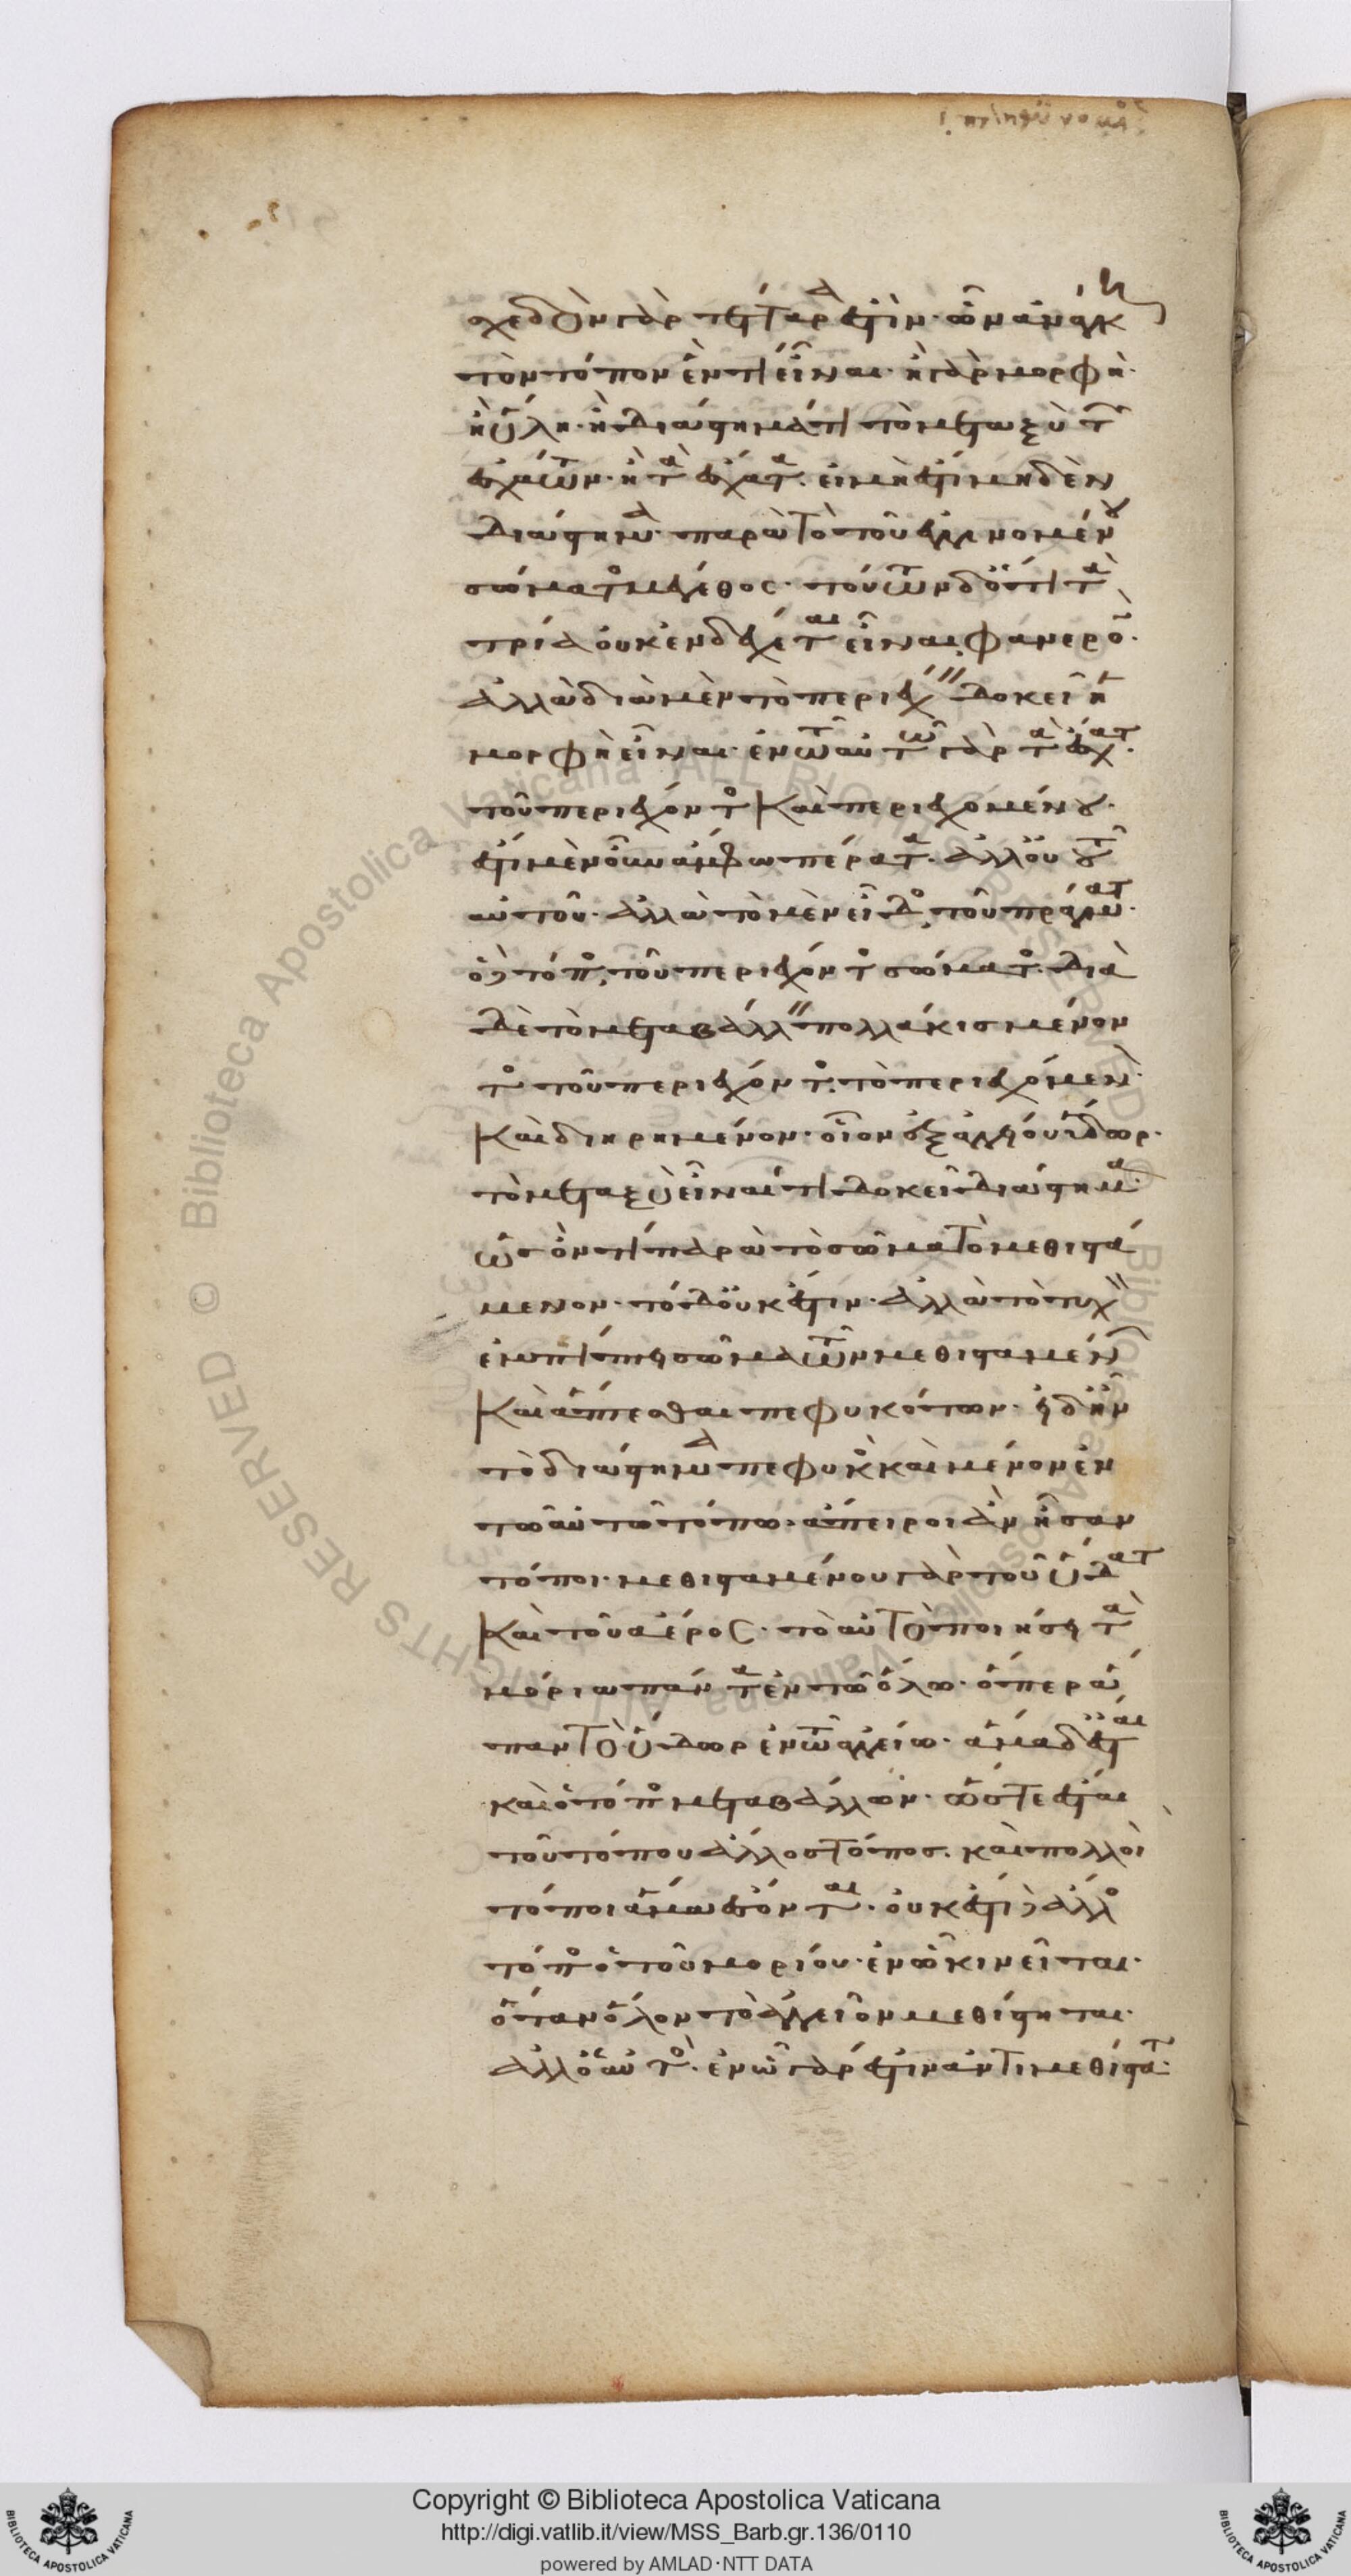 σχεδὸν γὰρ τέτταρά ἐστιν· ὧν ἀνάγκη
τὸν τόπον ἕν τι εἶναι· ἢ γὰρ μορφὴ·
ἢ ὕλη· ἢ διάστημά τι τὸ μεταξὺ τῶν
ἐσχάτων· ἢ τὰ ἔσχατα· εἰ μὴ ἔστι μηδὲν
διάστημα· παρὰ τὸ τοῦ ἐγγινομένου
σώματος μέγεθος· τούτων δ' ὅτι τὰ
τρία οὐκ ἐνδέχεται εἶναι, φανερόν·
ἀλλὰ διὰ μὲν τὸ περιέχειν δοκεῖ ἡ
μορφὴ εἶναι· ἐν τῶ αὐτῶ γὰρ τὰ ἔσχατα·
τοῦ περιέχοντος καὶ περιεχομένου·
ἔστι μὲν οὖν ἄμφω πέρατα· ἀλλ' οὐ τοῦ
αὐτοῦ· ἀλλὰ τὸ μὲν εἶδος, τοῦ πράγματος·
ὁ δὲ τόπος, τοῦ περιέχοντος σώματος· διὰ
δὲ τὸ μεταβάλλειν πολλάκις μένον
τος τοῦ περιέχοντος, τὸ περιεχόμενον·
καὶ διηρημένον· οἷον ἐξ ἀγγείου ὕδωρ·
τὸ μεταξὺ εἶναί τι δοκεῖ διάστημα·
ὡς ὄν τι παρὰ τὸ σῶμα τὸ μεθιστά
μενον· τὸ δ' οὐκ ἔστιν· ἀλλὰ τὸ τυχὸν
ἐμπίπτει σῶμα τῶν μεθισταμένων
καὶ ἅπτεσθαι πεφυκότων· εἰ δ' ἦν
τὸ διάστημα πεφυκὸς καὶ μένον ἐν
τῶ αὐτῶ τόπω· ἄπειροι ἂν ἦσαν
τόποι· μεθισταμένου γὰρ τοῦ ὕδατος
καὶ τοῦ ἀέρος· τὸ αὐτὸ ποιήσει τὰ
μόρια πάντα ἐν τῶ ὅλω· ὅπερ ἅ
παν τὸ ὕδωρ ἐν τῶ ἀγγείω· ἅμα δ' ἔσται
καὶ ὁ τόπος μεταβάλλων· ὥστε ἔσται
τοῦ τόπου ἄλλος τόπος· καὶ πολλοὶ
τόποι ἅμα ἔσονται· οὐκ ἔστι δὲ ἄλλος
τόπος ὁ τοῦ μορίου· ἐν ὧ κινεῖται·
ὅταν ὅλον τὸ ἀγγεῖον μεθίστηται·
ἀλλ' ὁ αὐτός· ἐν ὧ γάρ ἐστιν ἀντιμεθίστατ·
Copyright © Biblioteca Apostolica Vaticana
http://digi.vatlib.it/view/MSS_Barb.gr.136/0110
powered by AMLAD·NTT DATA